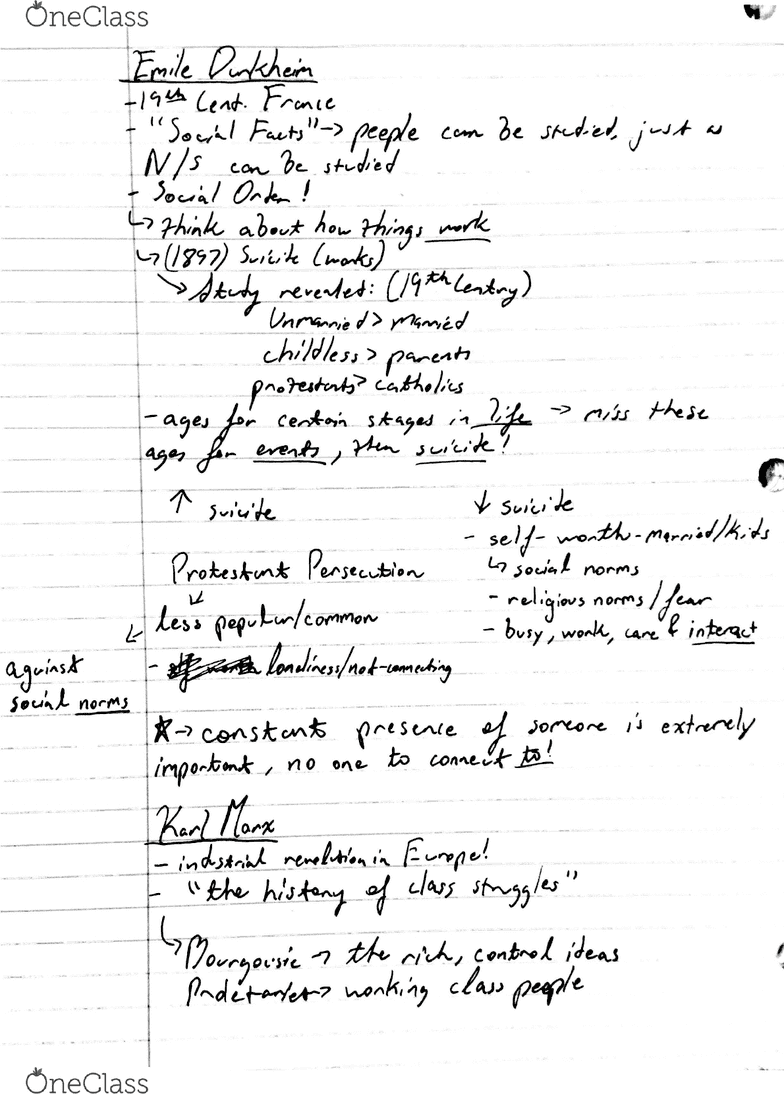 OneClass
Emile Durkheim
- 19th Cent. France
- "Social Facts" → people can be studied, just as
N/S can be studied
- Social Order!
↳ think about how things work
↳ (1897) Suicite (works)
↳ Study revealed: (19th Centry)
Unmarried > married
childless > parents
protestants > catholics
- ages for certain stages in life → miss these
ages for events, then suicite!
↑ suicite
↓ suicite
- self-worth-married/kids
↳ social norms
Protestant Persecution
- religious norms/fear
less popular/common
- busy, work, care & interact
against
social norms
- loneliness/not-connecting
★→ constant presence of someone is extremely
important, no one to connect to!
Karl Marx
- industrial revolution in Europe!
- "the history of class struggles"
↳ Bourgousie → the rich, control ideas
Proletariet → working class people
OneClass